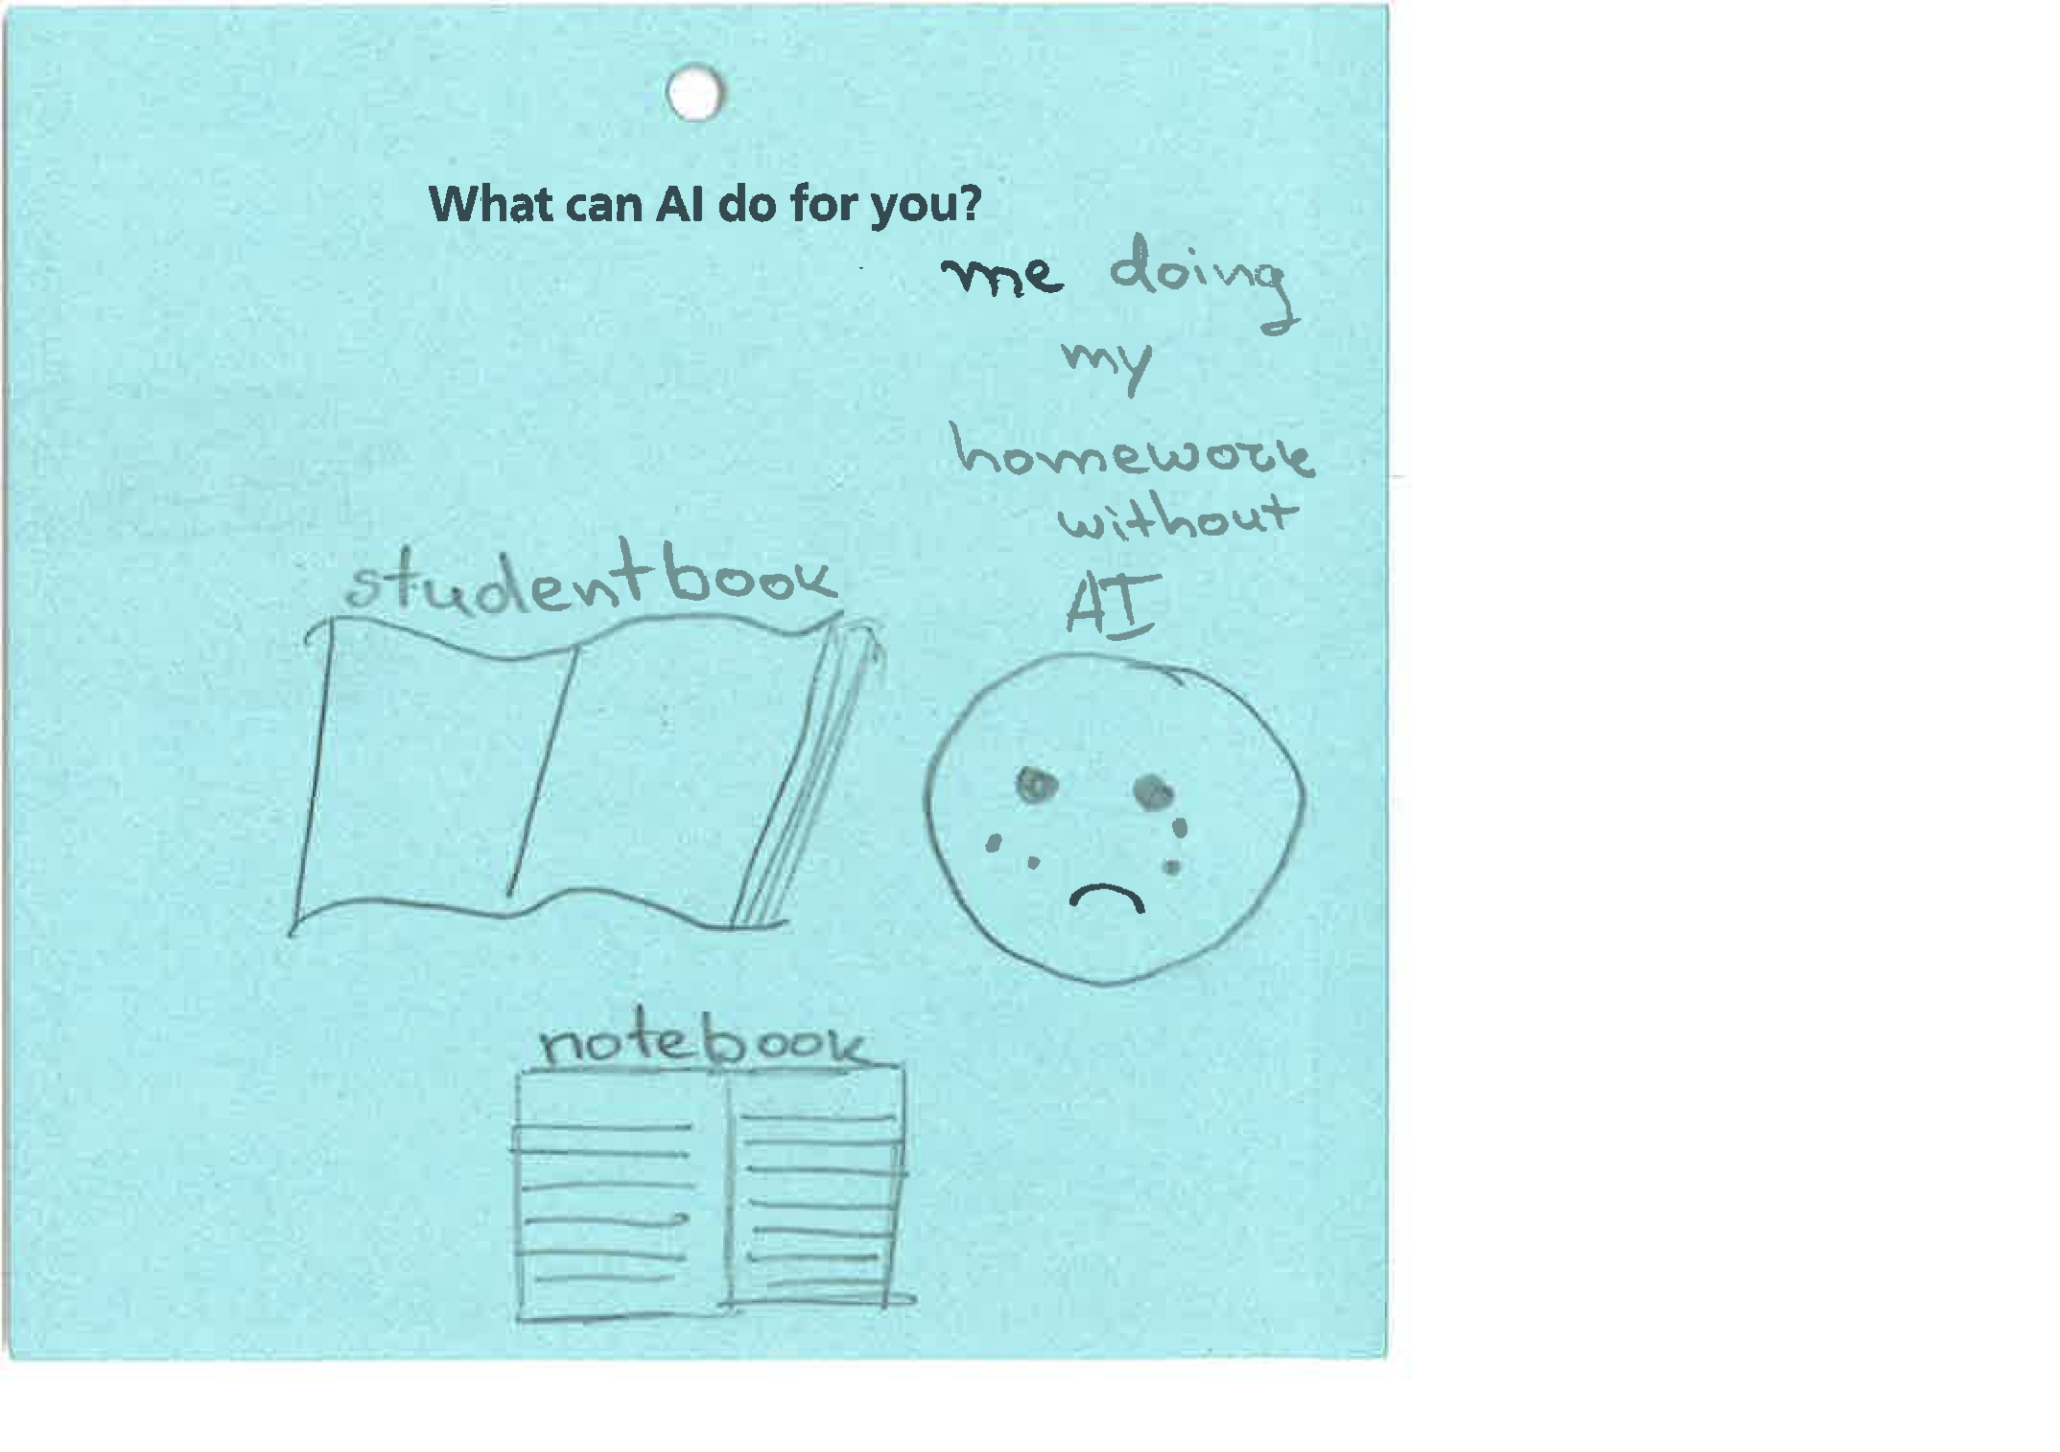 What can AI do for you?
me doing
my
homework
without
AI
studentbook
notebook